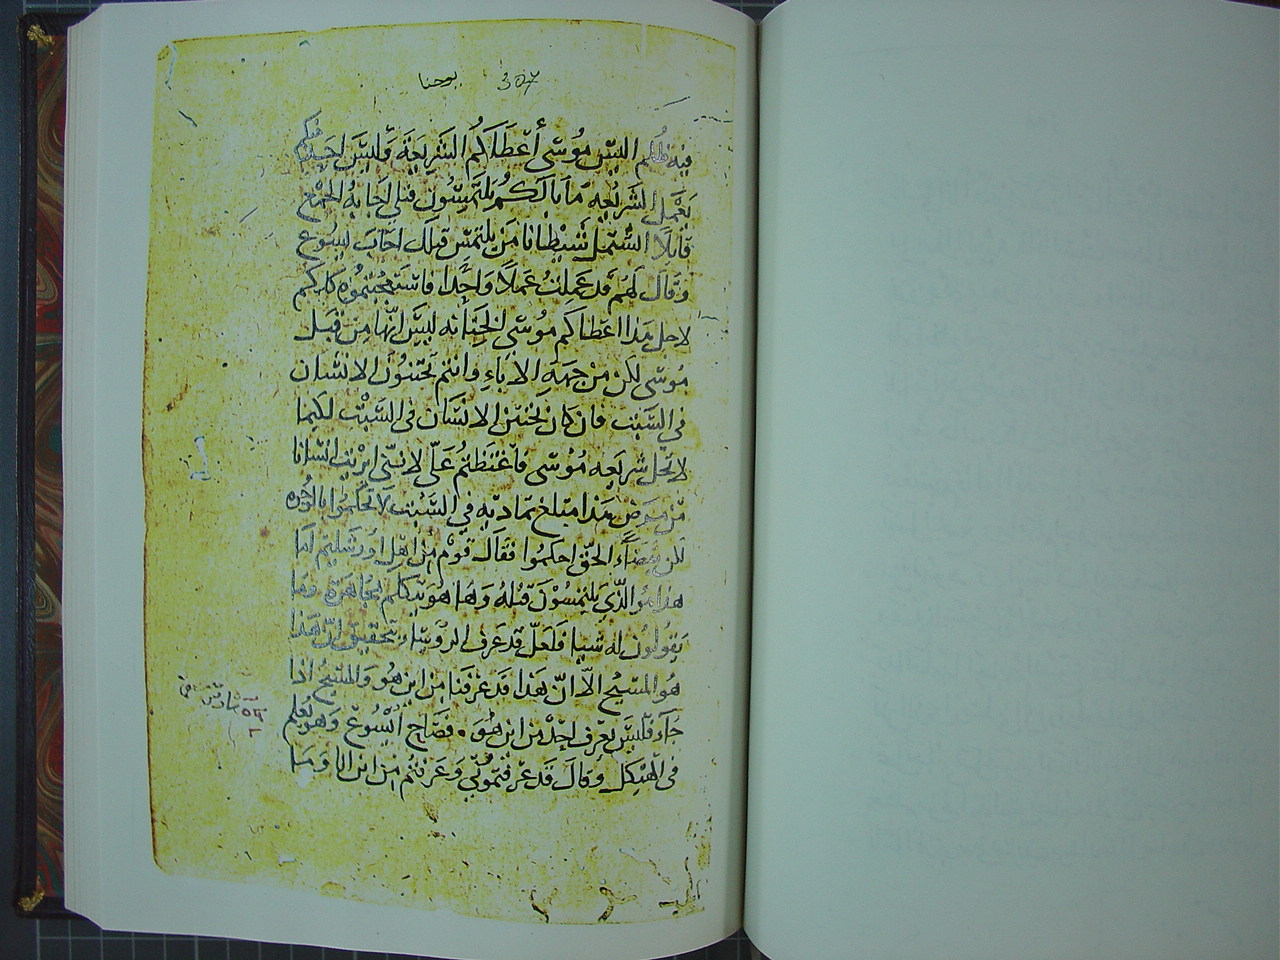 يوحنا 307
فيه ظلم اليس مُوسَى أَعْطَاكُم الشَرِيعَة وَليسَ احَد منكم
يَعْمَل الشَريعِه مَا بَالكُم تَلتَمِسُون قتلي اجَابهُ الجَمْع
قَايلاً اشتمل شَيْطانا مَنْ يلتمسِ قتلك اجَابَ ايسُوع
وَقَالَ لَهُم قَد عَمِلتُ عَمَلاً وَاحِدًا فاستعجبتموُه كلكم
لاجل هَذا اعطاكم مُوسَى الخِتَانه ليسَ انّها من قبل
مُوسَى لكن من جهَةِ الابَاءِ وانتم تختنوُن الانسَان
في السَبت فان كان يختتن الانسَان في السَبْت لكيما
لا تحل شريعه مُوسَى فاغتَظتُم عَلَيّ لانّني ابريت انسَانا
من مرَض هَذا مبلغ تماديه في السَبْت لا تحكموُا بالوُجوه
لكن بقضَاء الحَق احكموُا فقَالَ قوْم مِن اهْل اورشليم امَا
هذا هوَ الّذي يلتمسُوْنَ قتلهُ وَهَا هوَ يتكلم مجَاهَرة ومَا
يَقولوُن له شيا فلَعَلّ قد عَرف الروسَا بتحقيق انّ هَذا
هُو المسَيح الاّ انّ هَذا قد عَرفنَا مِن اين هُو وَالمسَيح اذا
جَاءَ فليسَ يَعرف احَدٌ من اين هُوَ . فصَاح ايسُوع وَهوَ يُعَلم
في الهَيكل وَقالَ قَد عَرفتموُني وَعَرفتُم مِن اين انا وَمَا